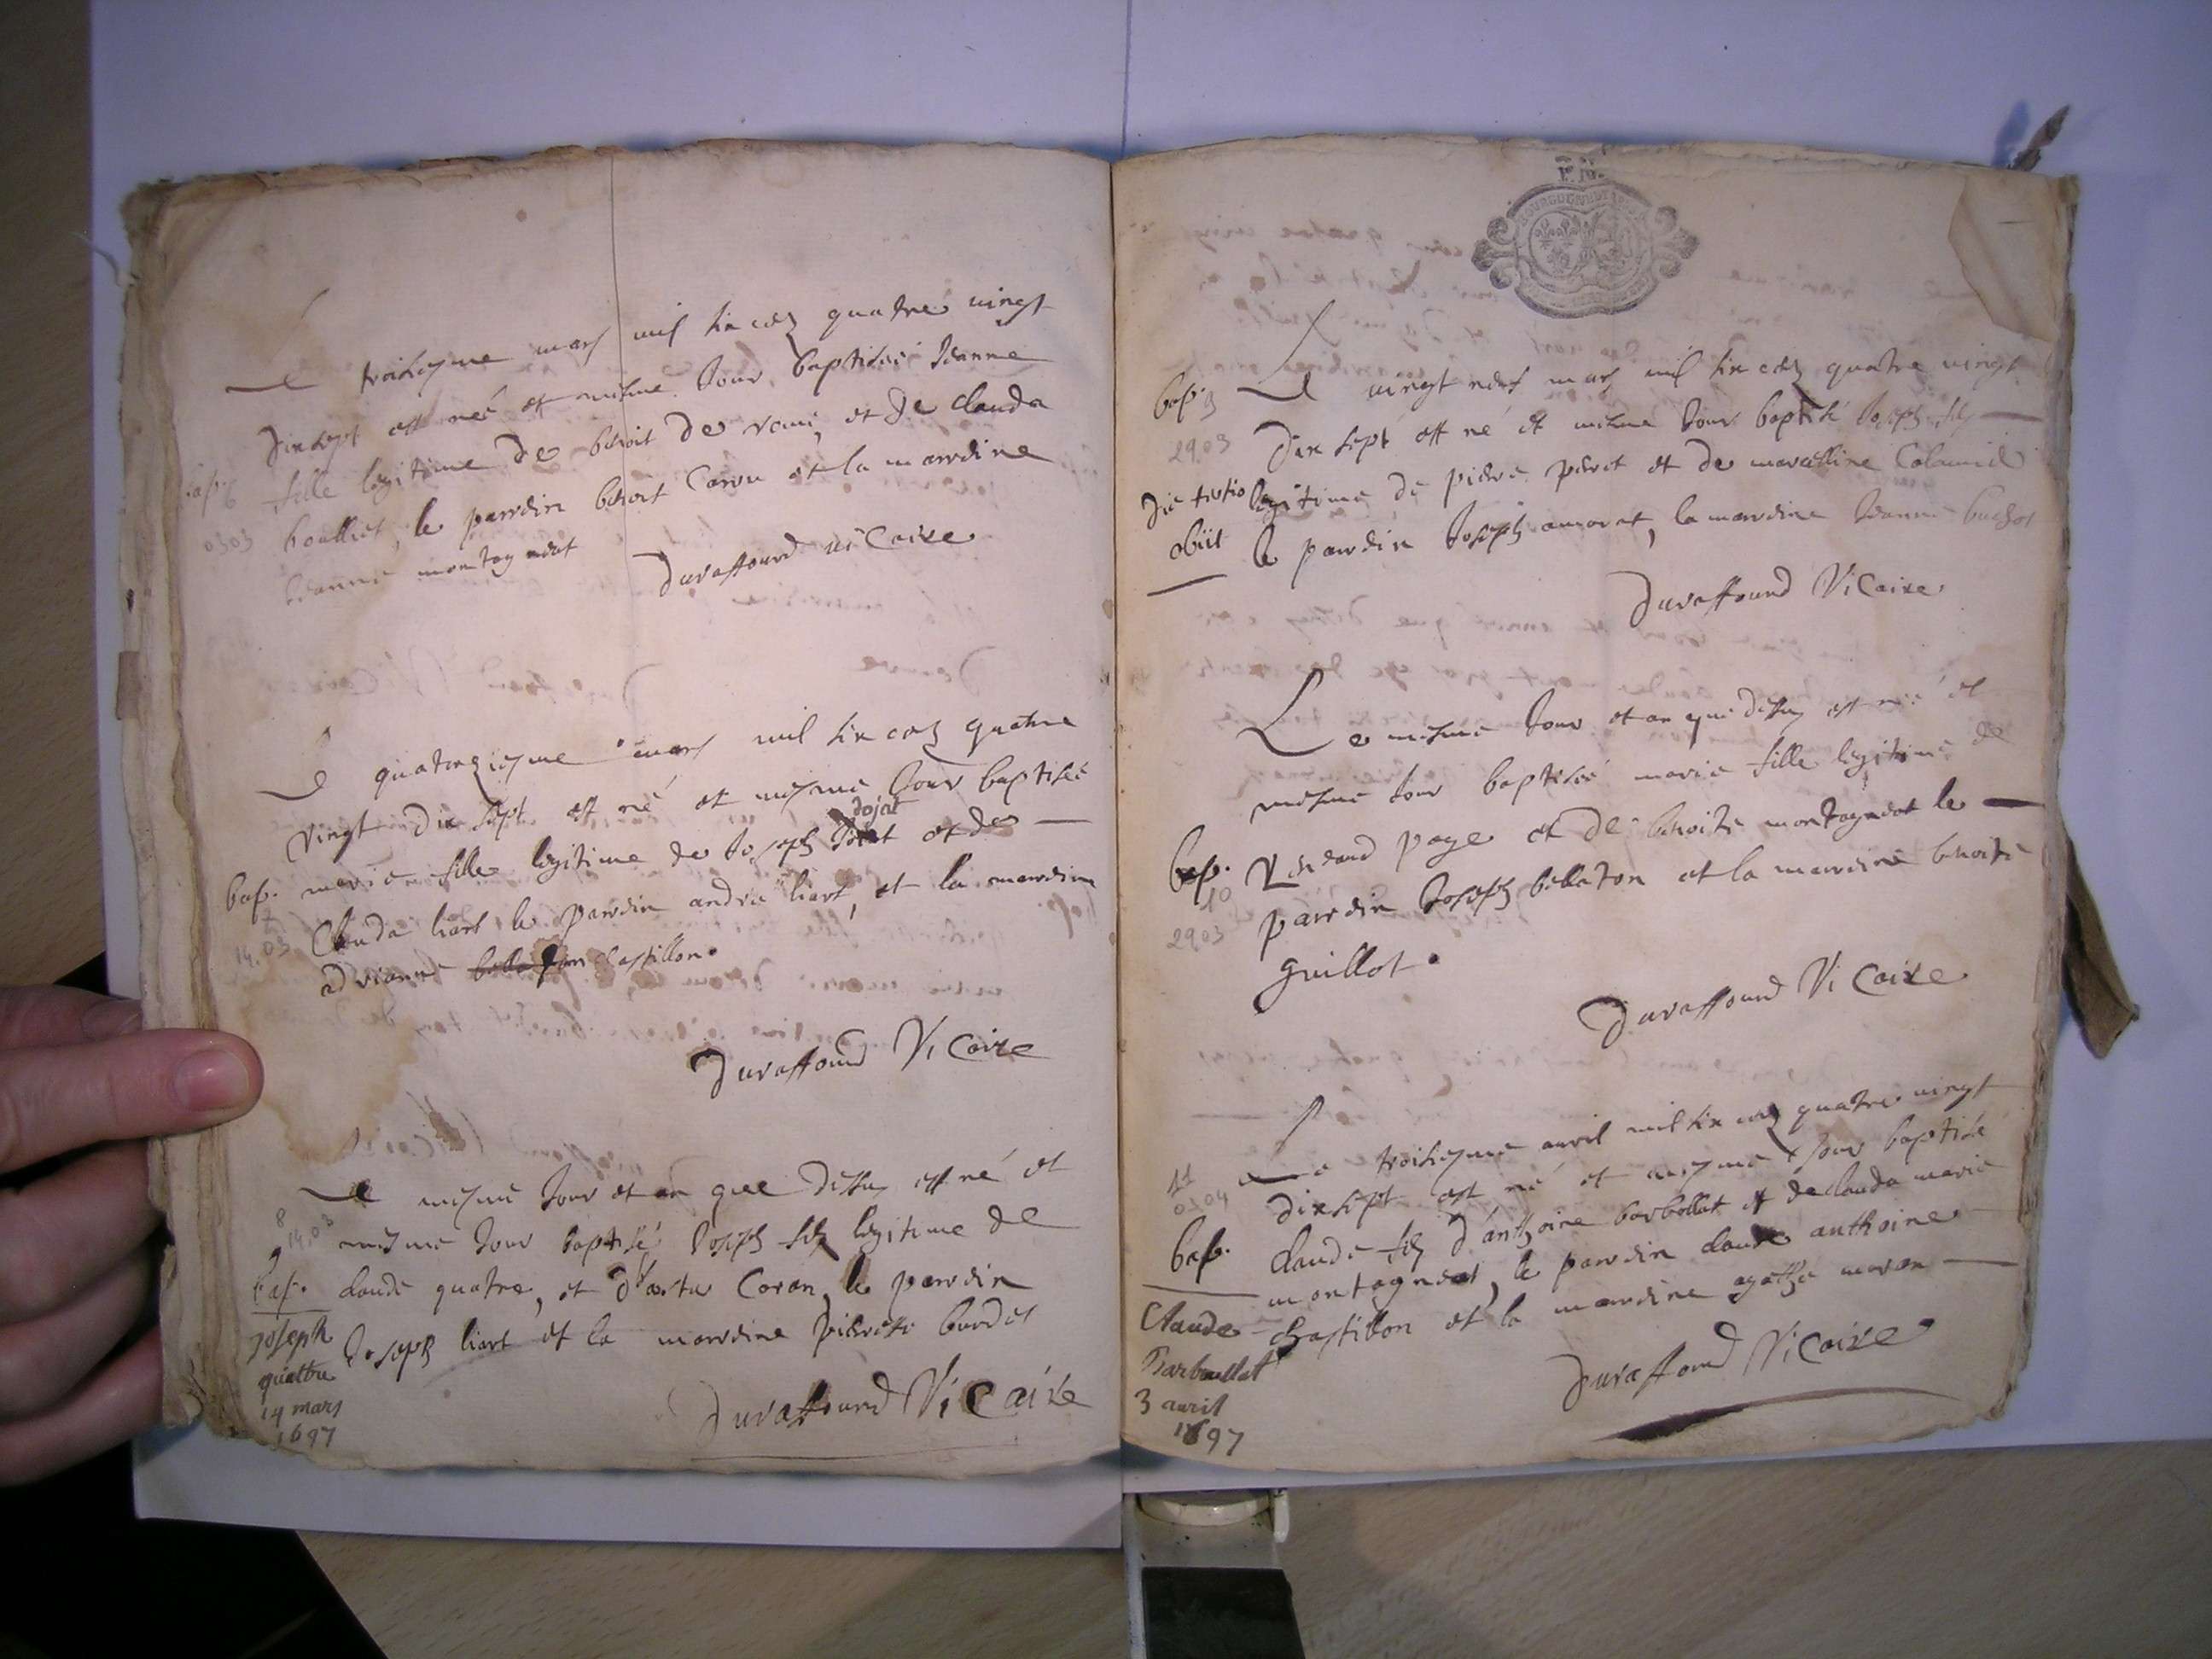 Le troisiesme mars mil six cens quatre vingt
dixsept est neé et mesme Jour baptiseé Jeanne
fille legitime de benoit de
et de clauda
bap. 6
0303
boulliet, le parrdin benoit Caron et la marrdine
Jeanne montagneat
Duraffourd viCaire
Le quatorziesme mars mil six cens quatre
vingt dix sept est né et mesme Jour baptiseé
dojat
marie fille legitime de Joseph et de
bap.
7
14.03
Clauda liart le parrdin andré liart, et la marrdine
adrianne chastillon.
Duraffourd ViCaire
Le mesme Jour et an que dessus est né et
8
14.03
mesme Jour baptisé Joseph fils legitime de
bap.
claude quatre, et Caron, le parrdin
Joseph liart et la marrdine pierrette burdet
Joseph
quattre
14 mars
1697
Duraffourd ViCaire
BOURGOGNE
bap. 9
Le vingt neuf mars mil six cens quatre vingt
29.03
Dix sept est né et mesme Jour baptisé Joseph fils
Die tertio
obiit
legitime de pierre perret et de marcelline
le parrdin Joseph amorat, la marrdine Jeanne buchot
Duraffourd ViCaire
Le mesme Jour et an que dessus est neé et
mesme Jour baptiseé marie fille legitime de
bap.
10
29.03
page et de benoite montagneat le
parrdin Joseph bellaton et la marrdine benoite
guillot.
Duraffourd ViCaire
Le troisiesme avril mil six cens quatre vingt
11
0304
dixsept est né et mesme Jour baptisé
bap.
claude fils d'anthoine barbollat et de clauda marie
montagneat, le parrdin claude anthoine
chastillon et la marrdine agathe moran
Claude
Barboullat
3 avril
1697
Duraffourd ViCaire